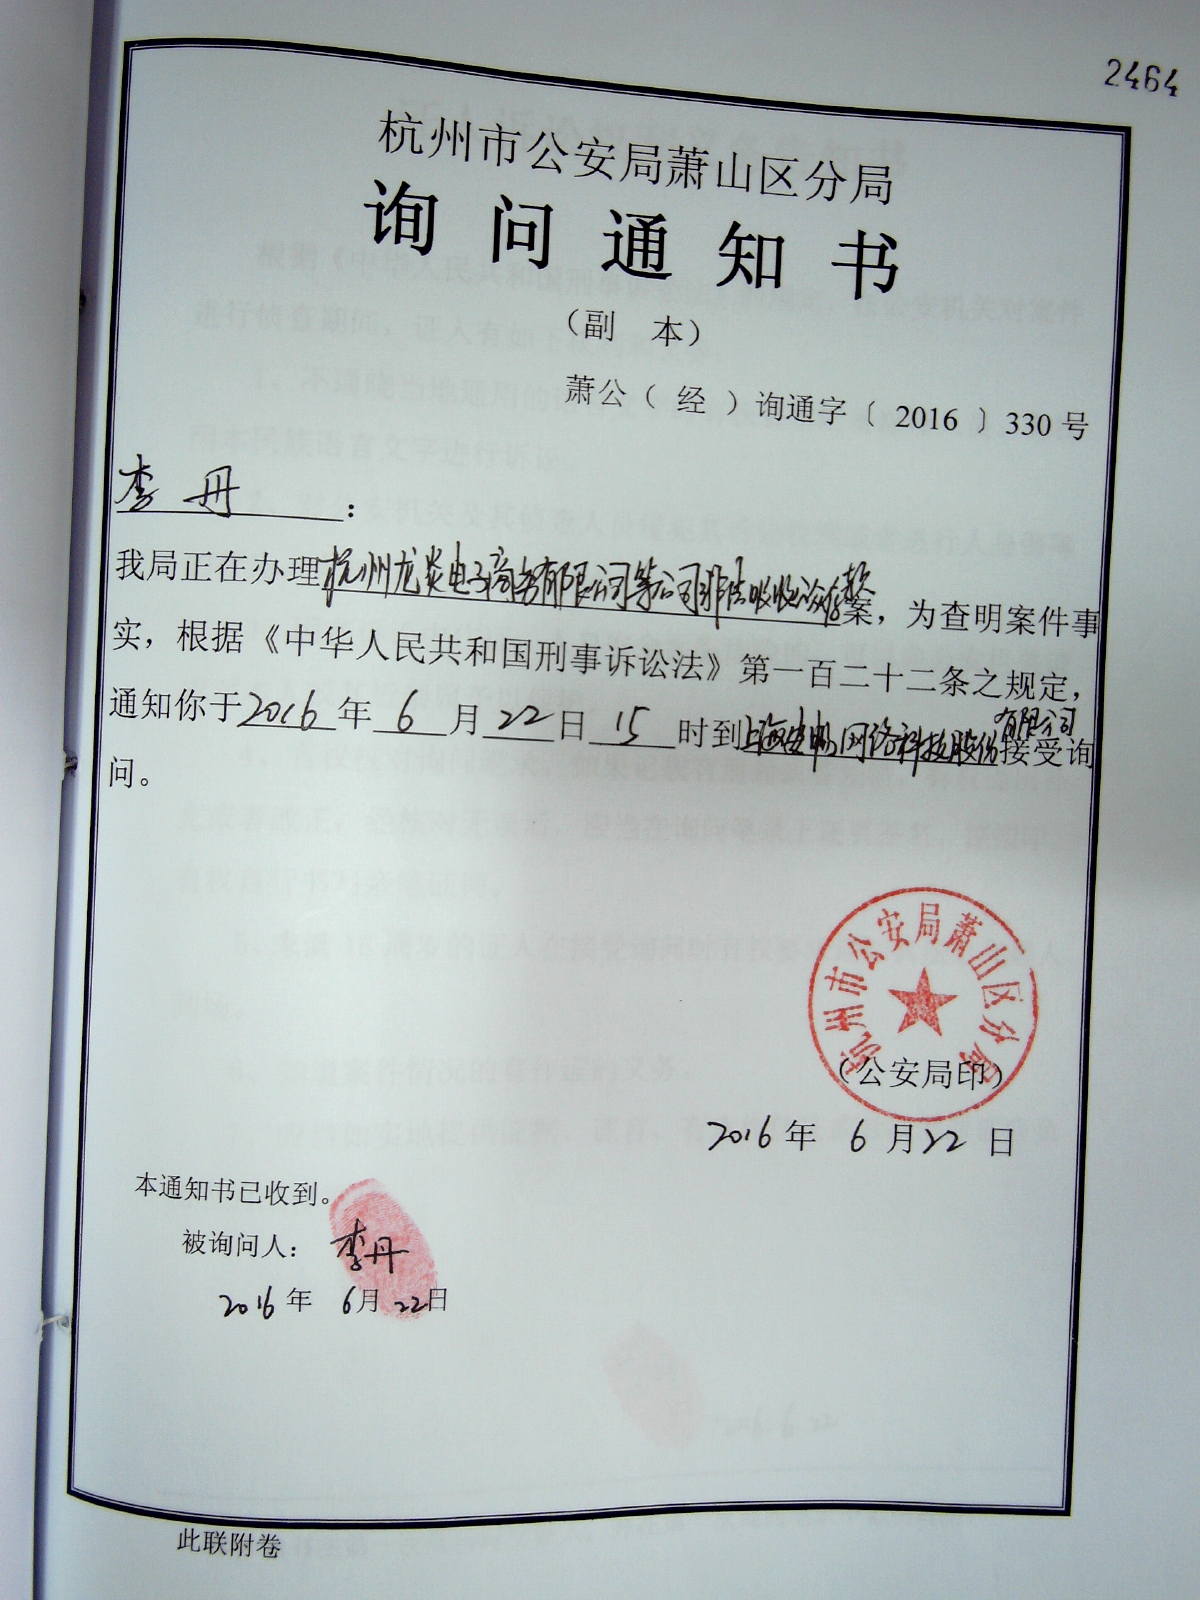 2464
杭州市公安局萧山区分局
询问通知书
（副 本）
萧公（经）询通字〔2016〕330号
李丹：
我局正在办理杭州龙炎电子商务有限公司等公司非法吸收公众存款案，为查明案件事
实，根据《中华人民共和国刑事诉讼法》第一百二十二条之规定，
通知你于2016年6月22日15时到上海 网络科技股份有限公司接受询
问。
杭州市公安局萧山区分局
（公安局印）
2016年6月22日
本通知书已收到。
被询问人：李丹
2016年6月22日
此联附卷